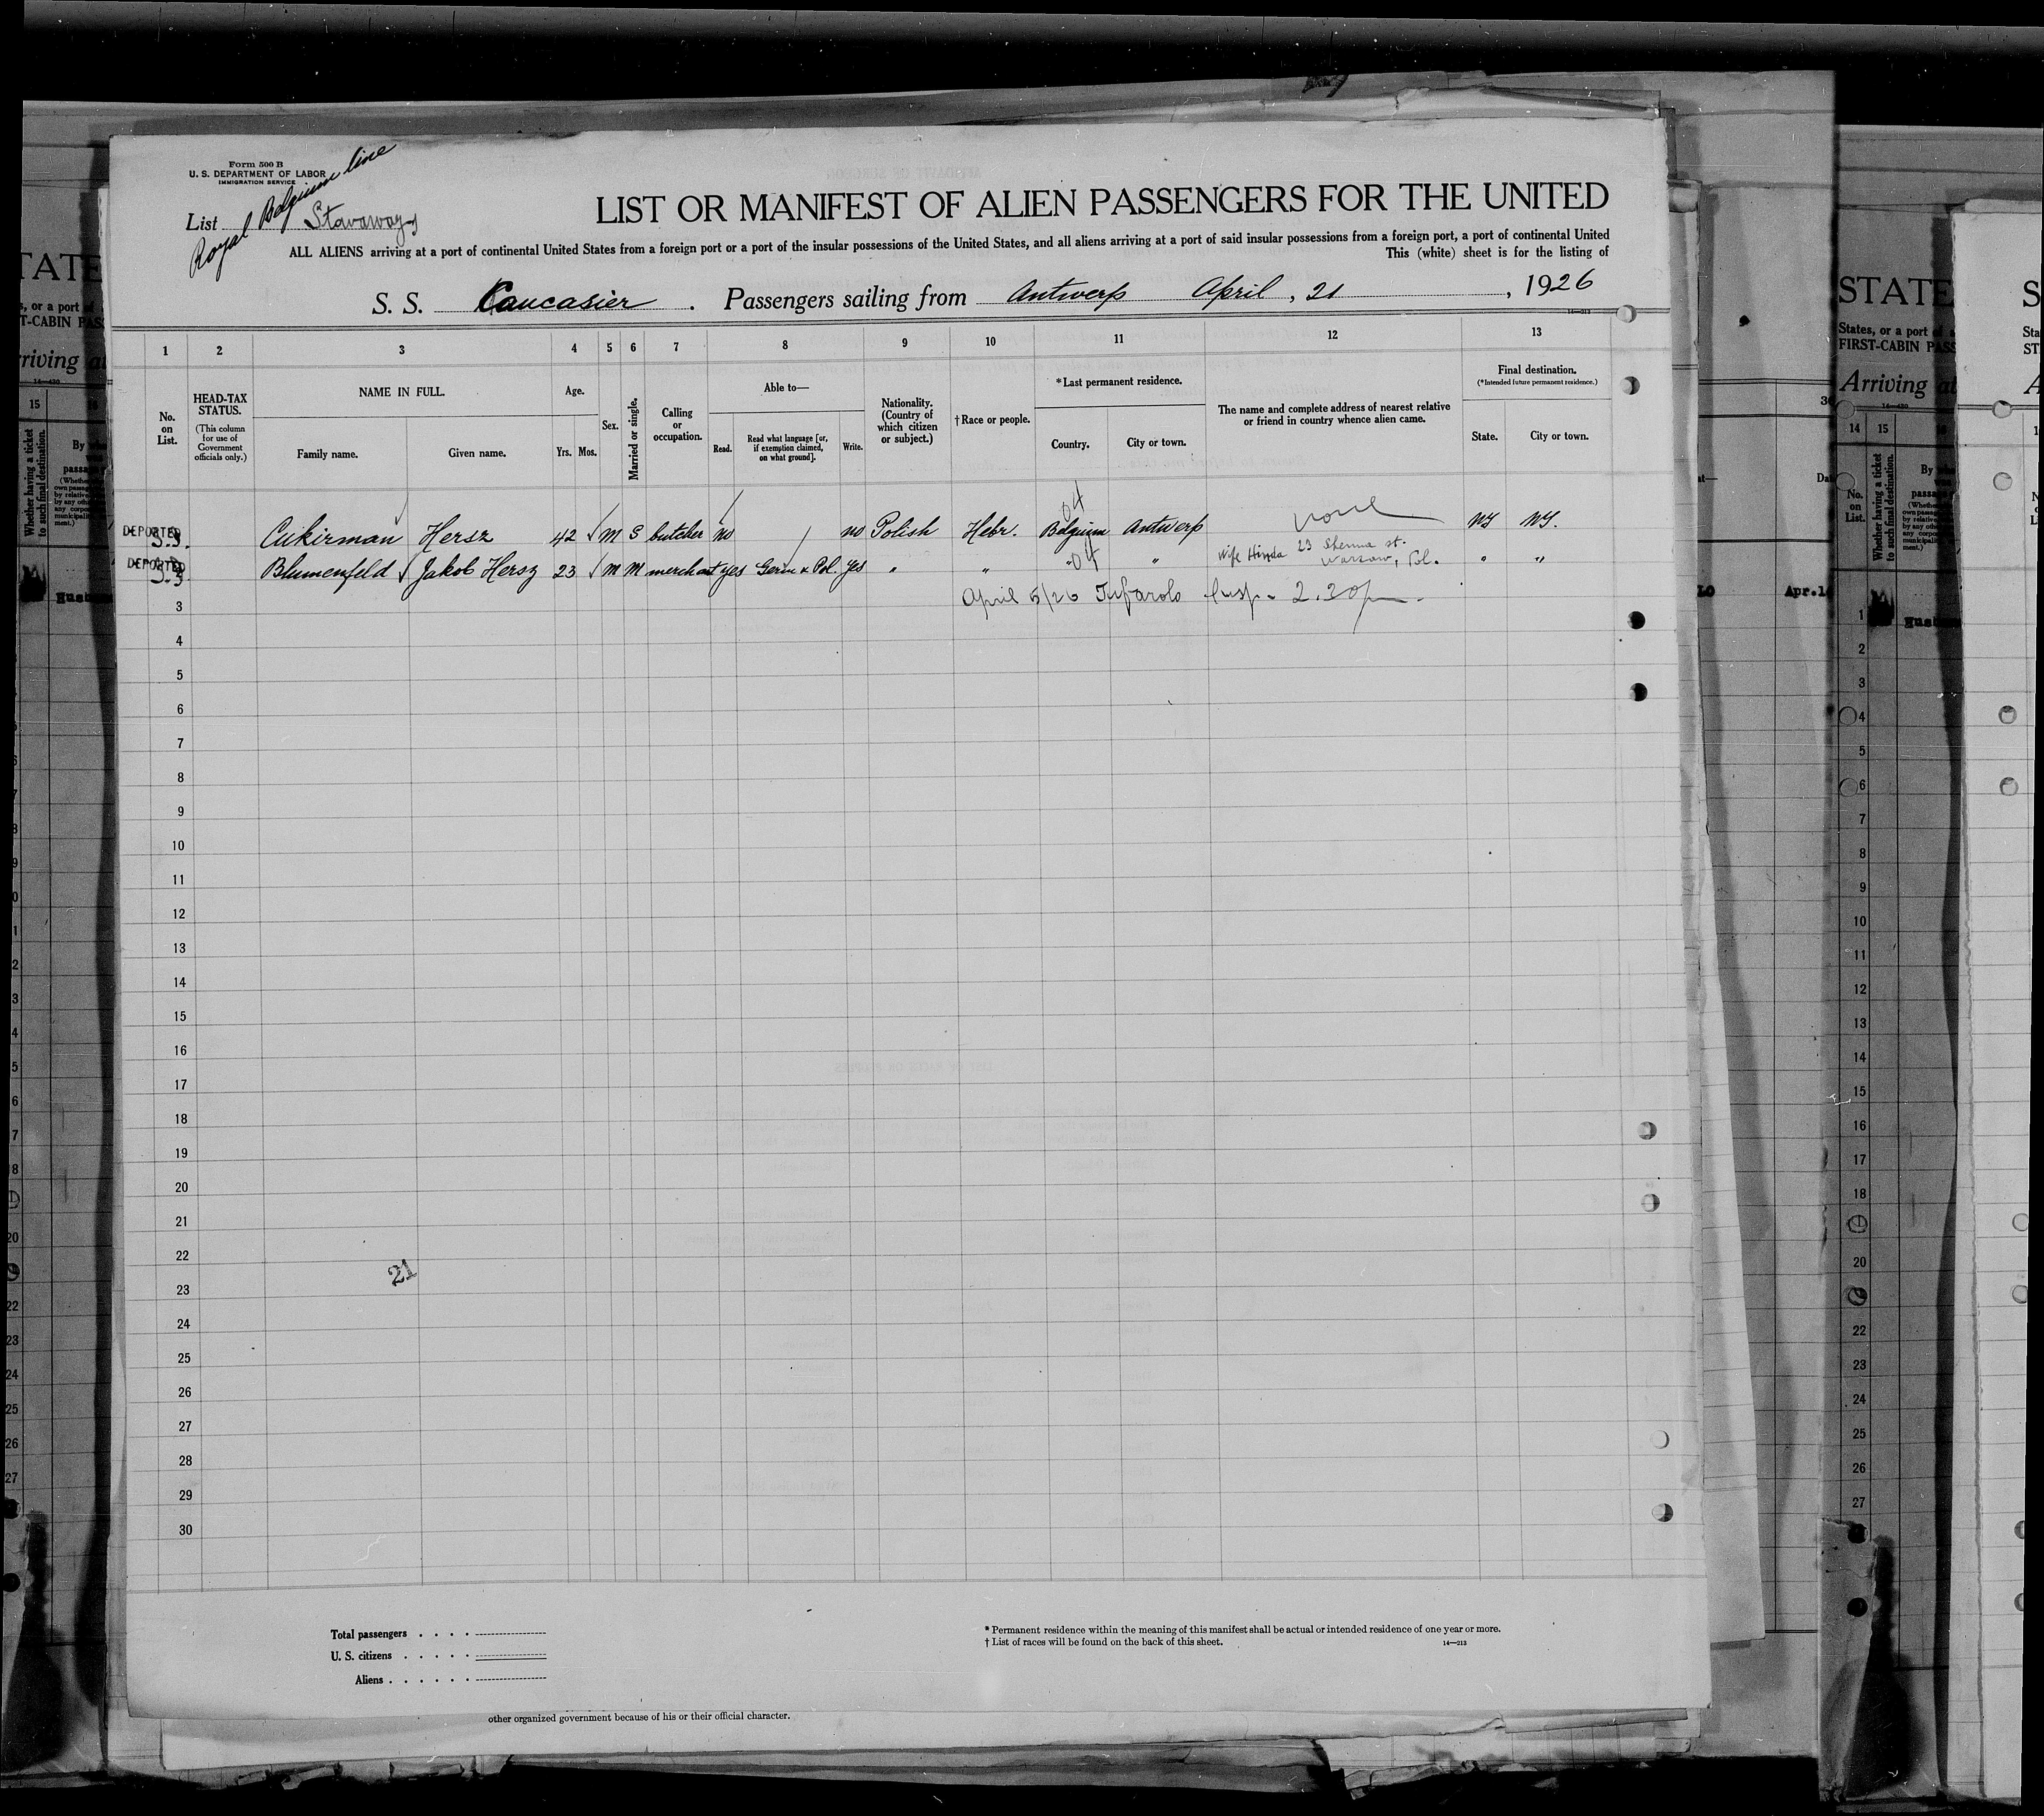 Form 500 B
U. S. DEPARTMENT OF LABOR
IMMIGRATION SERVICE
Royal Belgium line
List Stowaways
LIST OR MANIFEST OF ALIEN PASSENGERS FOR THE UNITED
ALL ALIENS arriving at a port of continental United States from a foreign port or a port of the insular possessions of the United States, and all aliens arriving at a port of said insular possessions from a foreign port, a port of continental United
This (white) sheet is for the listing of
S. S. Caucasier . Passengers sailing from Antwerp April , 21 , 1926
14—213
1 2 3 4 5 6 7 8 9 10 11 12 13
No. on List.
HEAD-TAX STATUS.
(This column for use of Government officials only.)
NAME IN FULL.
Family name. Given name.
Age.
Yrs. Mos.
Sex.
Married or single.
Calling or occupation.
Able to—
Read. Read what language [or, if exemption claimed, on what ground]. Write.
Nationality. (Country of which citizen or subject.)
†Race or people.
*Last permanent residence.
Country. City or town.
The name and complete address of nearest relative or friend in country whence alien came.
Final destination.
(*Intended future permanent residence.)
State. City or town.
DEPORTED Cukirman Hersz 42 M S butcher no no Polish Hebr. Belgium Antwerp none NY NY.
DEPORTED Blumenfeld Jakob Hersz 23 M M merchant yes Germ & Pol. yes " " " " Wife Hinda 23 st. Warsaw, Pol. " "
3 April 5/26 Insp. 2.30 pm.
4
5
6
7
8
9
10
11
12
13
14
15
16
17
18
19
20
21
22
21
23
24
25
26
27
28
29
30
Total passengers . . . .
U. S. citizens . . . . .
Aliens . . . . . .
* Permanent residence within the meaning of this manifest shall be actual or intended residence of one year or more.
† List of races will be found on the back of this sheet.
14—213
other organized government because of his or their official character.
STATE
States, or a port of
FIRST-CABIN PASS
Arriving at
14 15
No. on List.
Whether having a ticket to such final destination.
Apr.